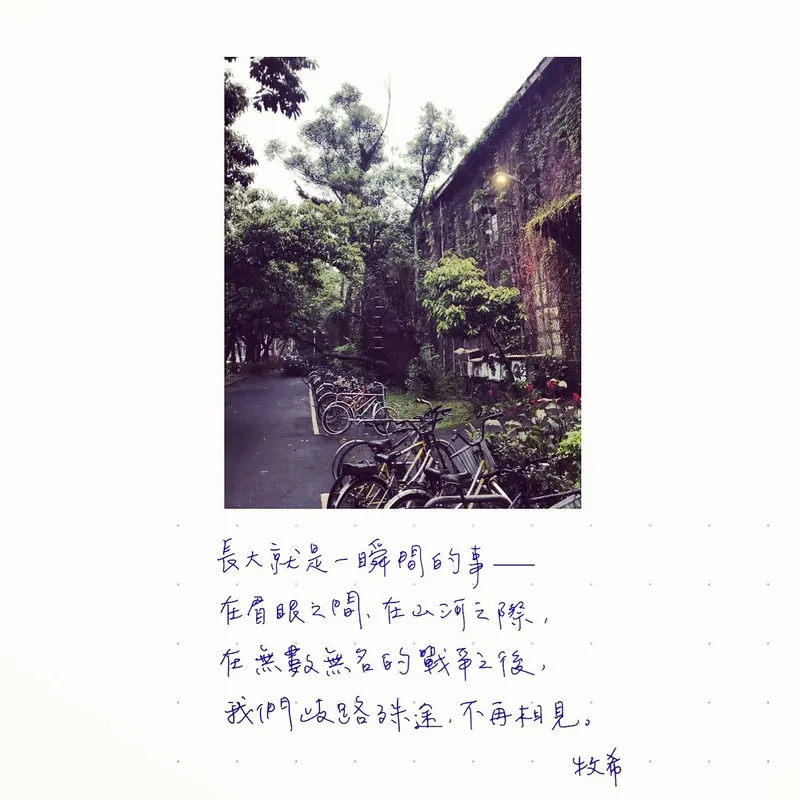 長大就是一瞬間的事——
在眉眼之間、在山河之際，
在無數無名的戰爭之後，
我們歧路殊途，不再相見。
牧希